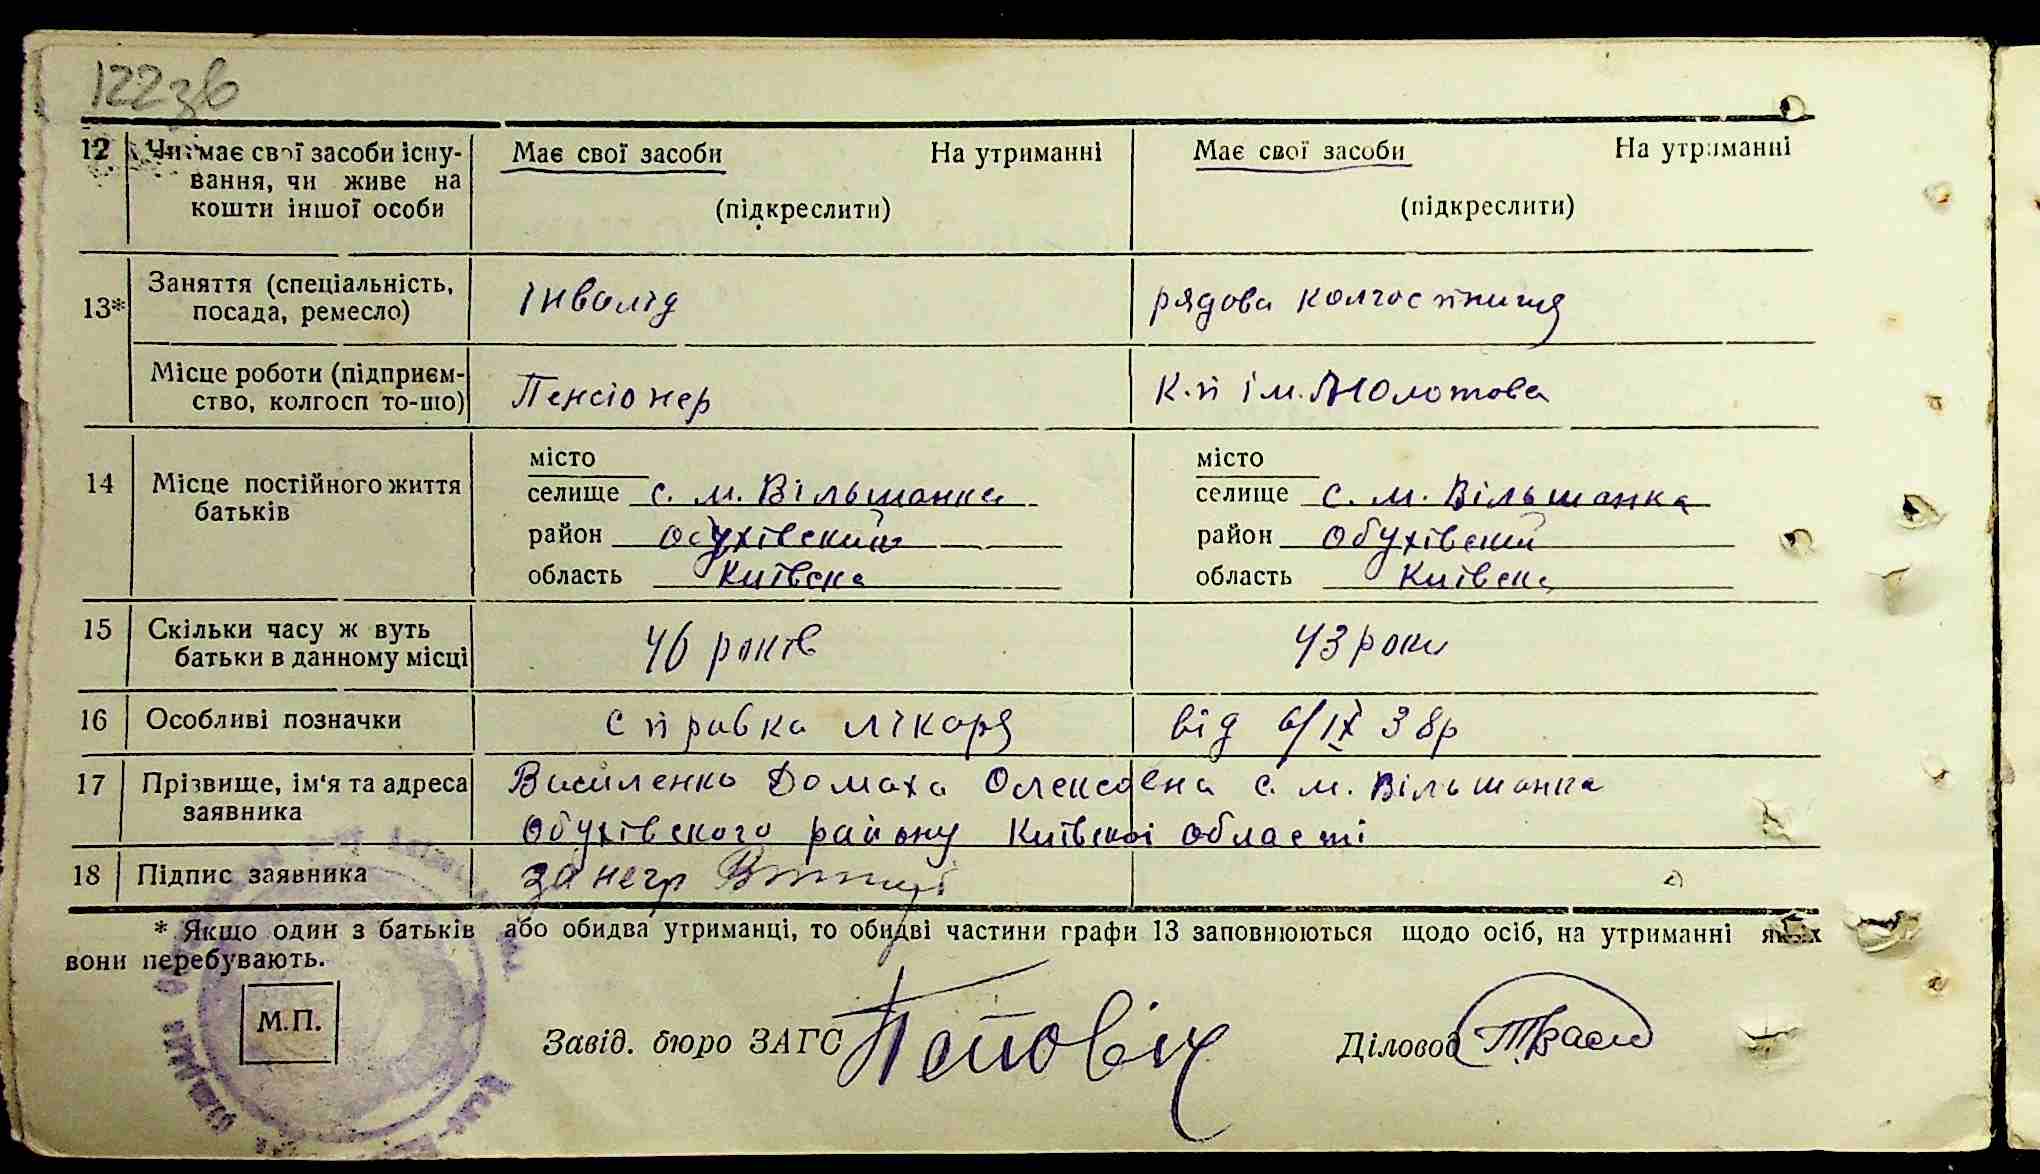 122зв
12 Чи має свої засоби існу- Має свої засоби На утриманні Має свої засоби На утриманні
вання, чи живе на
кошти іншої особи (підкреслити) (підкреслити)
13* Заняття (спеціальність, посада, ремесло) Інвалід рядова колгоспниця
Місце роботи (підприєм-
ство, колгосп то-що) Пенсіонер К.п ім. Молотова
місто місто
14 Місце постійного життя селище с. м. Вільшанка селище с. м. Вільшанка
батьків район Обухівский район Обухівский
область Київска область Київска
15 Скільки часу ж вуть 46 років 43 роки
батьки в данному місці
16 Особливі позначки справка лікаря від 6/IX 38р
17 Прізвище, ім'я та адреса Василенко Домаха Олексовна с. м. Вільшанка
заявника Обухівского району Київскої області
18 Підпис заявника за негр
* Якщо один з батьків або обидва утриманці, то обидві частини графи 13 заповнюються щодо осіб, на утриманні яких
вони перебувають.
М.П. Завід. бюро ЗАГС Попович Діловод